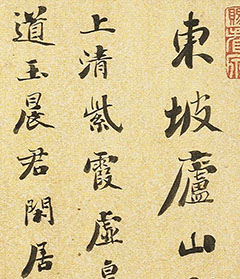 東坡廬山
上清紫霞虛皇
道玉晨君閑居